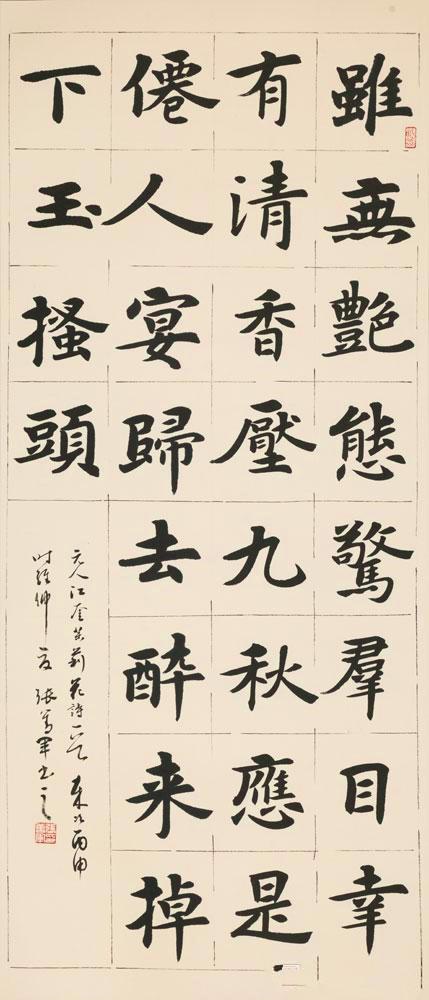 雖無艷態驚羣目幸
有清香壓九秋應是
僊人宴歸去醉来掉
下玉搔頭
元人江奎茉莉花詩一首 歲次丙申
时維仲夏 張萬軍书之